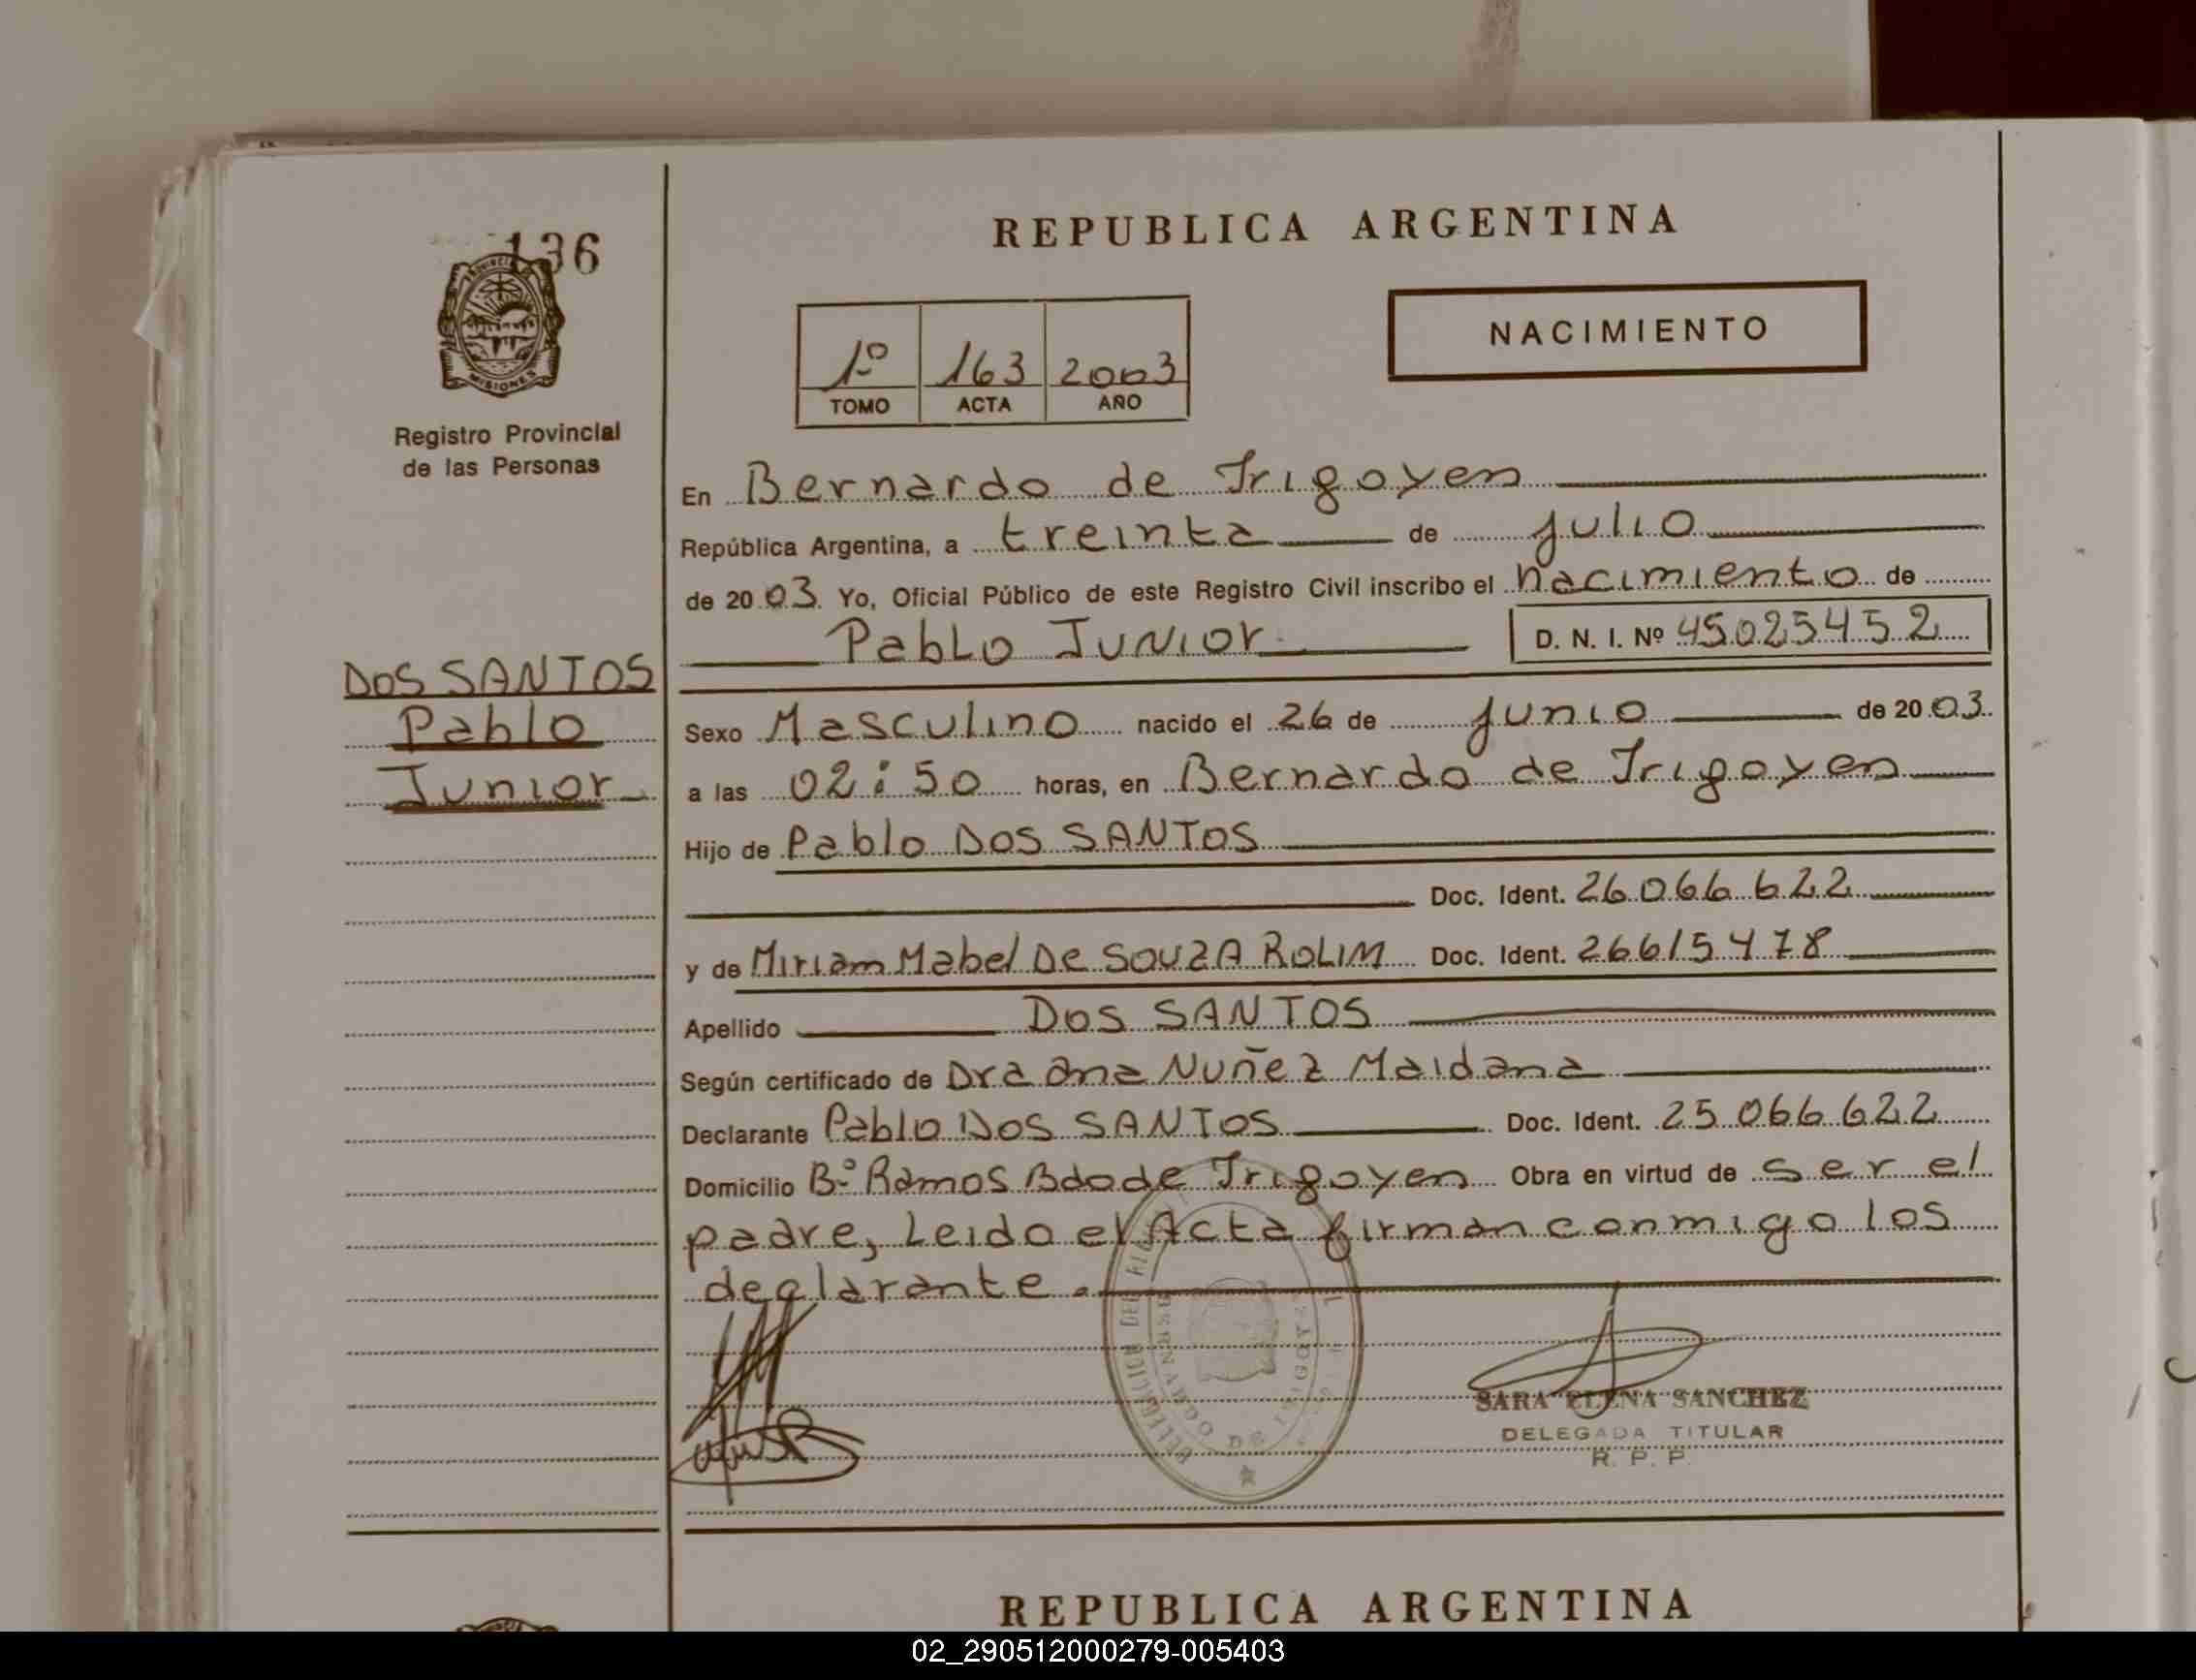 136
MISIONES
Registro Provincial
de las Personas
DOS SANTOS
Pablo
Junior
REPUBLICA ARGENTINA
NACIMIENTO
1º 163 2003
TOMO ACTA AÑO
En Bernardo de Irigoyen
República Argentina, a treinta de julio
de 2003 Yo, Oficial Público de este Registro Civil inscribo el nacimiento de
Pablo Junior D. N. I. Nº 45025452
Sexo Masculino nacido el 26 de junio de 2003
a las 02:50 horas, en Bernardo de Irigoyen
Hijo de Pablo DOS SANTOS
Doc. Ident. 26066622
y de Miriam Mabel De SOUZA ROLIM Doc. Ident. 26615478
Apellido DOS SANTOS
Según certificado de Dra Ana Nuñez Maidana
Declarante Pablo DOS SANTOS Doc. Ident. 25066622
Domicilio Bº Ramos Bdo de Irigoyen Obra en virtud de ser el
padre, Leido el Acta firman conmigo los
declarante.
SARA ELENA SANCHEZ
DELEGADA TITULAR
R. P. P.
REPUBLICA ARGENTINA
02_290512000279-005403